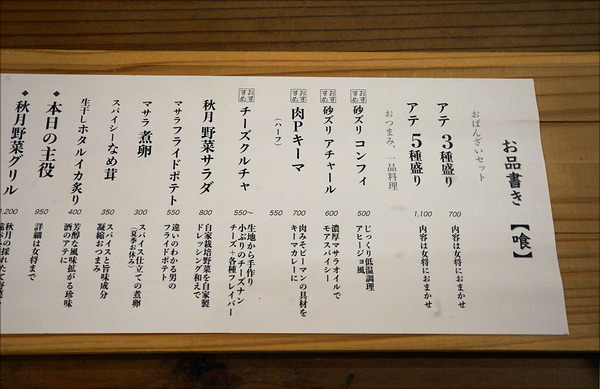 お品書き【喰】
おばんざいセット
アテ 3種盛り
700
内容は女将におまかせ
アテ 5種盛り
1,100
内容は女将におまかせ
おつまみ、一品料理
おすすめ
砂ズリ コンフィ
500
じっくり低温調理
アヒージョ風
おすすめ
砂ズリ アチャール
600
濃厚マサラオイルで
モアスパイシー
おすすめ
肉Pキーマ
(ハーフ)
700
肉みそピーマンの具材を
キーマカレーに
おすすめ
チーズクルチャ
550〜
生地から手作り
小ぶりのチーズナン
チーズ+各種フレイバー
秋月 野菜サラダ
800
自家栽培野菜を自家製
ドレッシング和えで
マサラフライドポテト
550
違いのわかる男の
フライドポテト
マサラ 煮卵
300
スパイス仕立ての煮卵
(夏季お休み)
スパイシーなめ茸
350
スパイスと旨味成分
凝縮おつまみ
生干しホタルイカ炙り
400
芳醇な風味拡がる珍味
酒のアテに
◆本日の主役
950
詳細は女将まで
◆秋月野菜グリル
1,200
秋月の採れたて野菜